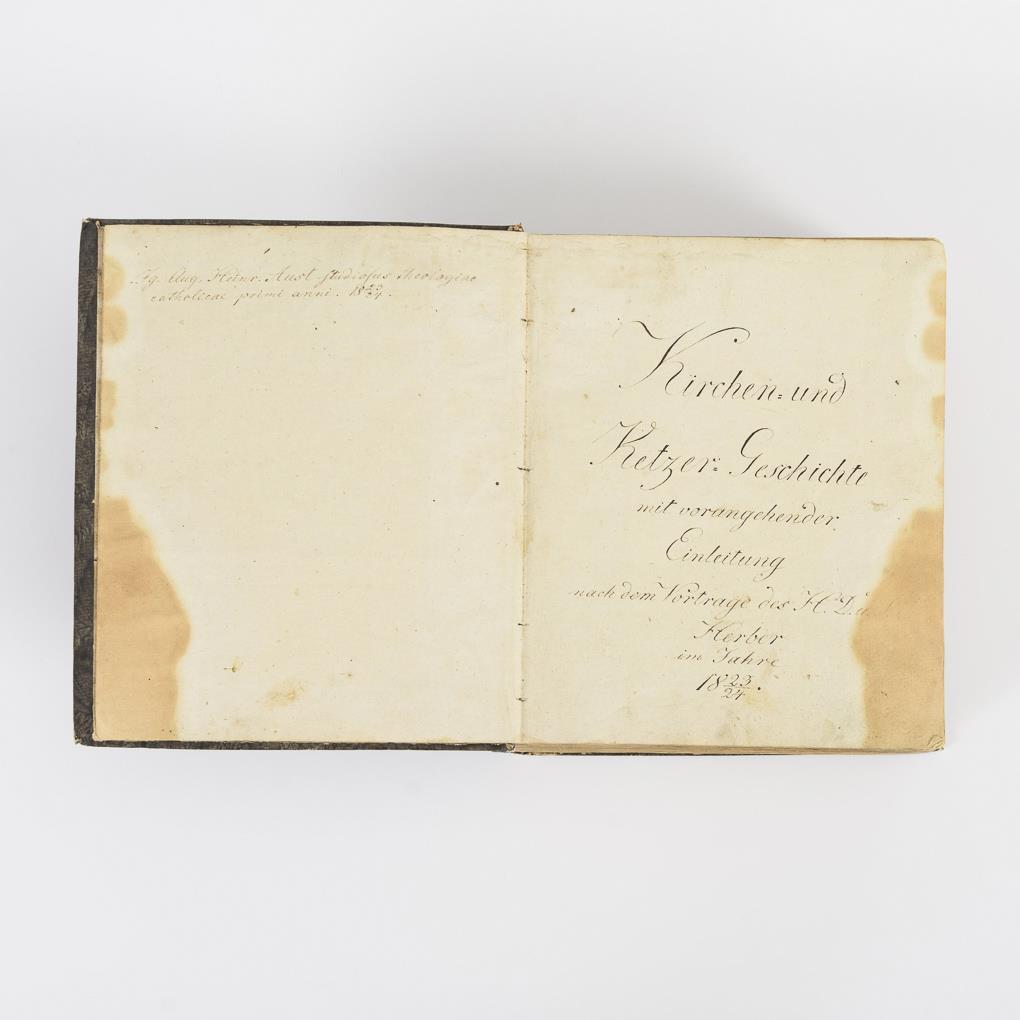 Aug. Heinr. Aust studiosus theologiae
catholicae primi anni. 18 23/24.
Kirchen= und
Ketzer= Geschichte
mit vorangehender
Einleitung
nach dem Vortrage des H. D.
Herber
im Jahre
18 23/24.